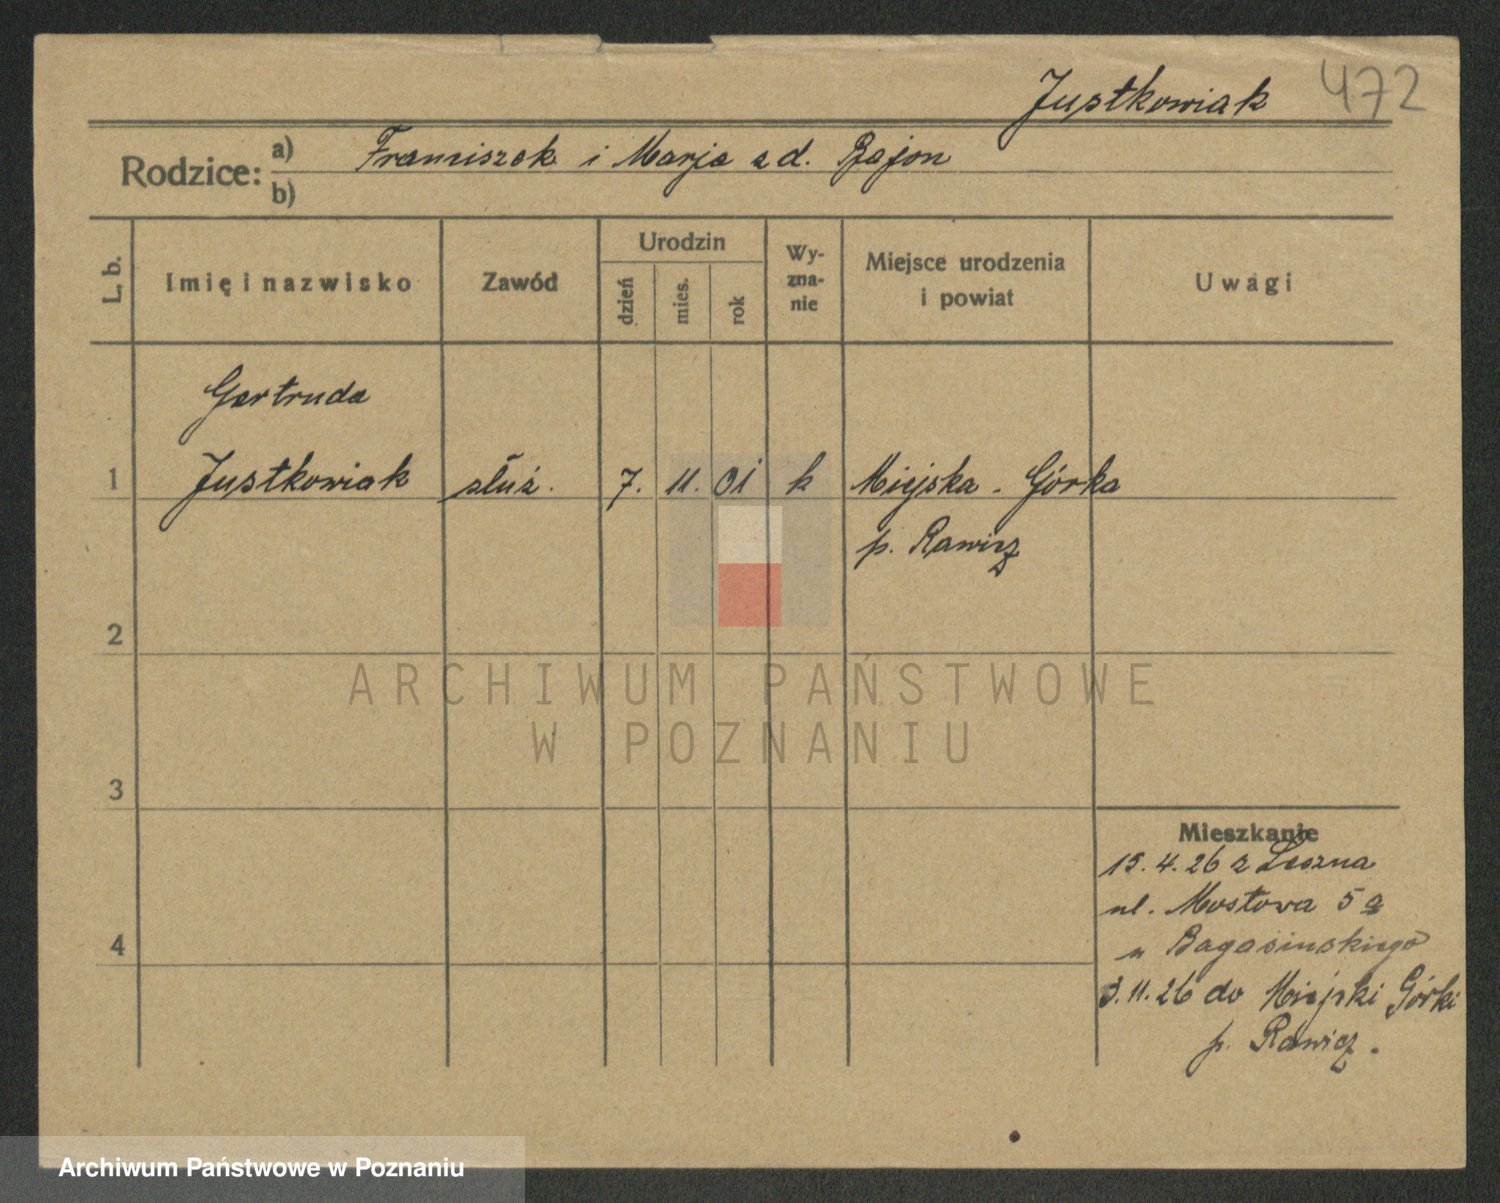 Justkowiak 472
Rodzice: a) Franciszek i Marja z d. Bajon
b)
L. b. Imię i nazwisko Zawód Urodzin dzień mies. rok Wyzna-nie Miejsce urodzenia i powiat Uwagi
Gertruda
1 Justkowiak służ. 7. 11. 01 k Miejska - Górka
p. Rawicz
2
ARCHIWUM PAŃSTWOWE
W POZNANIU
3
Mieszkanie
15.4.26 z Leszna
ul. Mostowa 5a
4 u Bagasinskiego
3.11.26 do Miejski Górki
p. Rawicz.
Archiwum Państwowe w Poznaniu